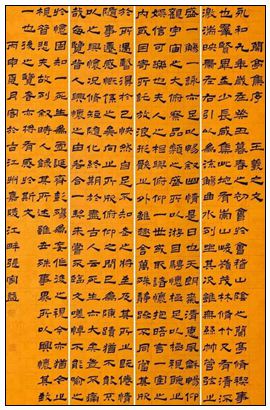 蘭亭集序 王羲之文
永和九年歲在癸丑暮春之初會于會稽山陰之蘭亭修禊事
也群賢畢至少長咸集此地有崇山峻嶺茂林修竹又有清流
激湍映帶左右引以為流觴曲水列坐其次雖無絲竹管弦之
盛一觴一詠亦足以暢敘幽情是日也天朗氣清惠風和暢仰
觀宇宙之大俯察品類之盛所以遊目騁懷足以極視聽之
娛信可樂也夫人之相與俯仰一世或取諸懷抱晤言一室之
內或因寄所託放浪形骸之外雖趣舍萬殊靜躁不同當其欣
於所遇暫得於己怏然自足不知老之將至及其所之既倦情
隨事遷感慨係之矣向之所欣俯仰之間已為陳跡猶不能不
以之興懷況修短隨化終期於盡古人云死生亦大矣豈不痛
哉每覽昔人興感之由若合一契未嘗不臨文嗟悼不能喻之
於懷固知一死生為虛誕齊彭殤為妄作後之視今亦猶今之
視昔悲夫故列敘時人錄其所述雖世殊事異所以興懷其致
一也後之覽者亦將有感於斯文
丙申夏月於古江州嘉陵江畔張家